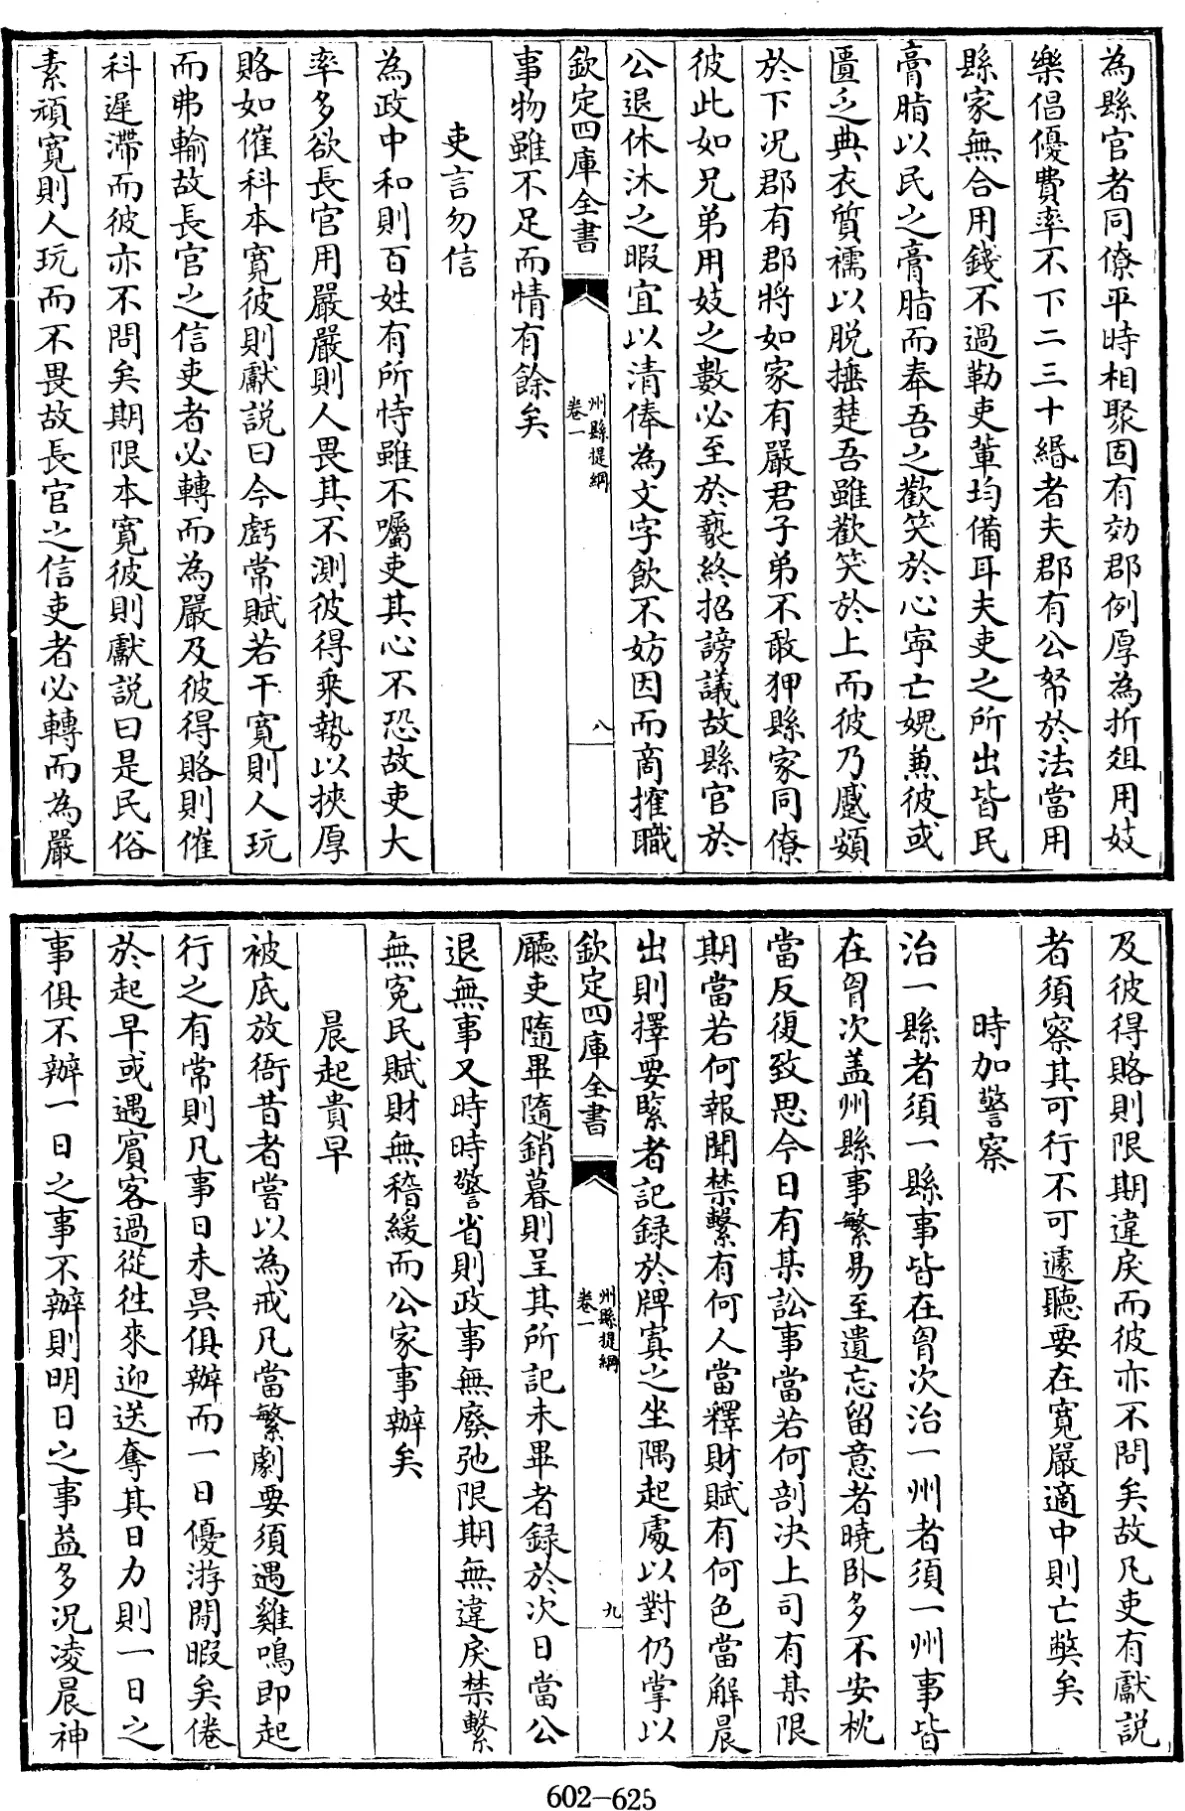 為縣官者同僚平時相聚固有効郡例厚為折俎用妓
樂倡優費率不下二三十緡者夫郡有公帑於法當用
縣家無合用錢不過勒吏輩均備耳夫吏之所出皆民
膏脂以民之膏脂而奉吾之歡笑於心寧亡媿兼彼或
匱乏典衣質襦以脱捶楚吾雖歡笑於上而彼乃蹙頞
於下况郡有郡將如家有嚴君子弟不敢狎縣家同僚
彼此如兄弟用妓之數必至於䙝終招謗議故縣官於
公退休沐之暇宜以清俸為文字飲不妨因而商搉職
欽定四庫全書
州縣提綱
卷一
八
事物雖不足而情有餘矣
吏言勿信
為政中和則百姓有所恃雖不囑吏其心不恐故吏大
率多欲長官用嚴嚴則人畏其不測彼得乘勢以挾厚
賂如催科本寛彼則獻説曰今虧常賦若干寛則人玩
而弗輸故長官之信吏者必轉而為嚴及彼得賂則催
科遲滯而彼亦不問矣期限本寛彼則獻説曰是民俗
素頑寛則人玩而不畏故長官之信吏者必轉而為嚴
及彼得賂則限期違戾而彼亦不問矣故凡吏有獻説
者須察其可行不可遽聽要在寛嚴適中則亡弊矣
時加警察
治一縣者須一縣事皆在胷次治一州者須一州事皆
在胷次盖州縣事繁易至遺忘留意者曉卧多不安枕
當反復致思今日有某訟事當若何剖决上司有某限
期當若何報聞禁繫有何人當釋財賦有何色當解晨
出則擇要緊者記録於牌寘之坐隅起處以對仍掌以
欽定四庫全書
州縣提綱
卷一
九
廳吏隨畢隨銷暮則呈其所記未畢者録於次日當公
退無事又時時警省則政事無廢弛限期無違戾禁繫
無寃民賦財無稽緩而公家事辦矣
晨起貴早
被底放衙昔者嘗以為戒凡當繁劇要須遇雞鳴即起
行之有常則凡事日未昃俱辦而一日優游閒暇矣倦
於起早或遇賓客過從往來迎送奪其日力則一日之
事俱不辦一日之事不辦則明日之事益多况凌晨神
602—625